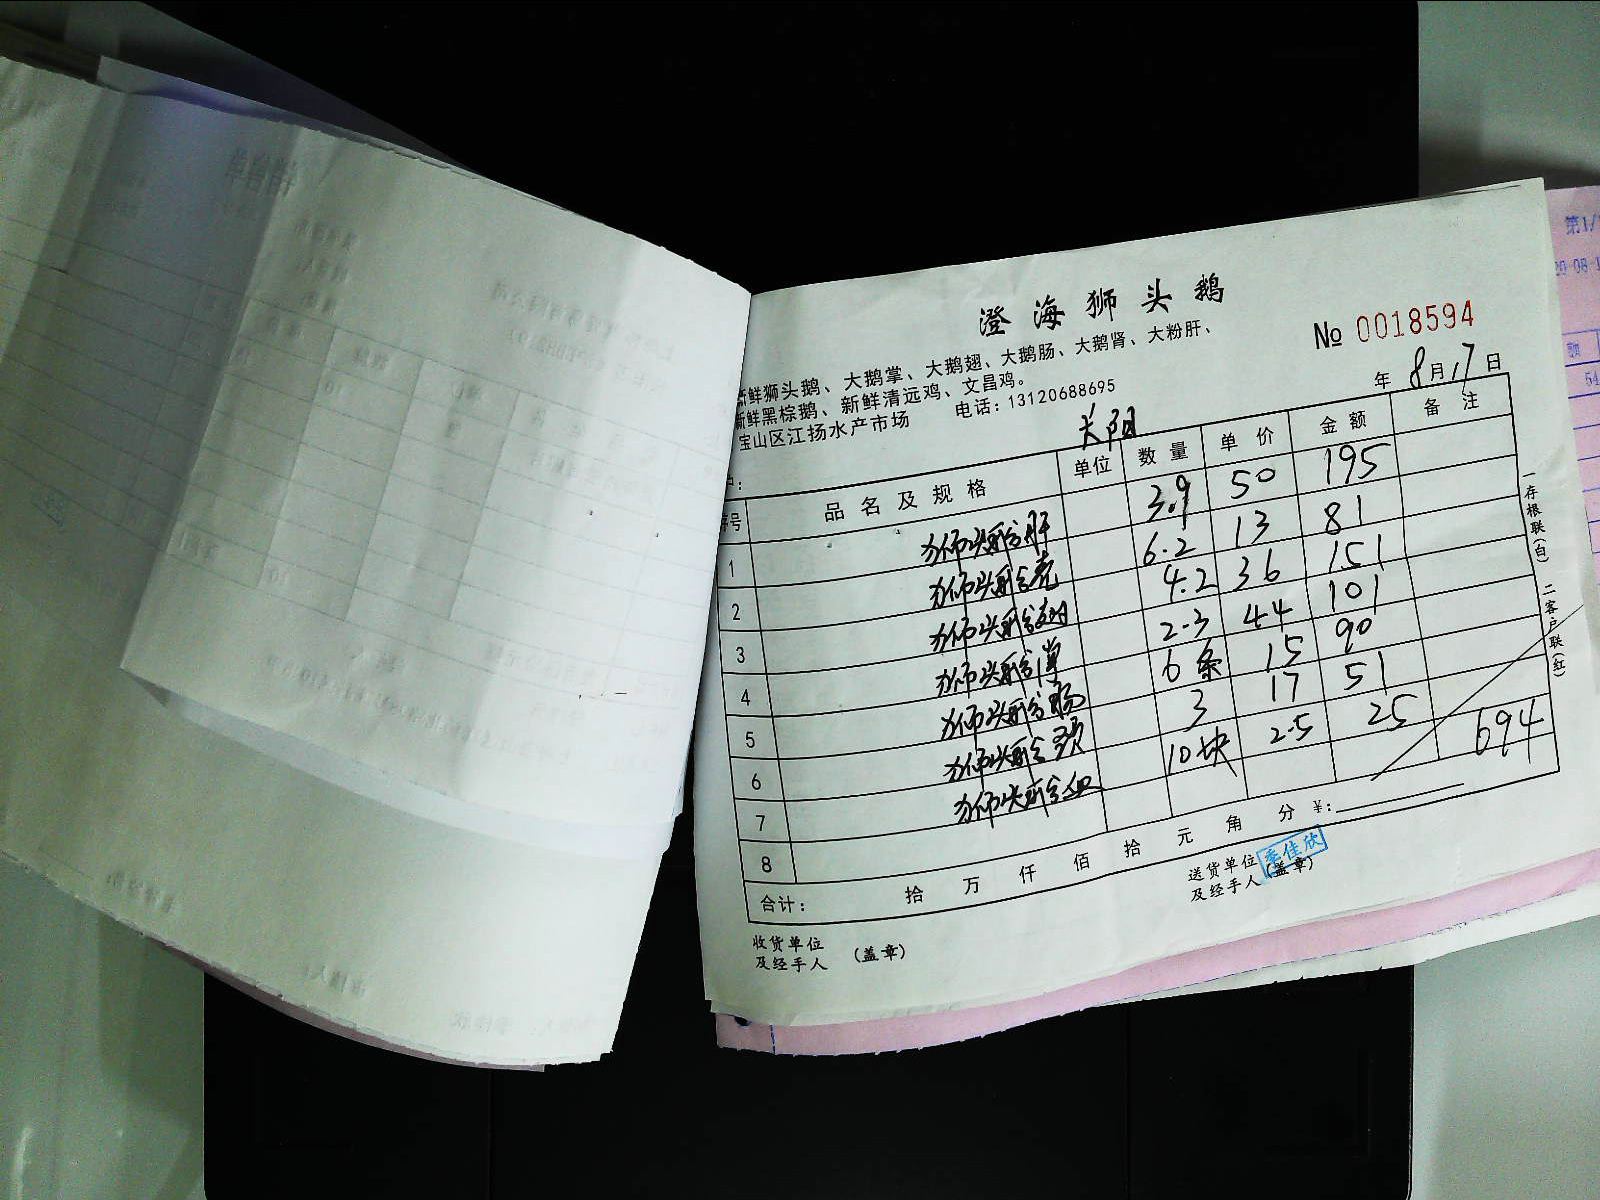 澄海狮头鹅
新鲜狮头鹅、大鹅掌、大鹅翅、大鹅肠、大鹅肾、大粉肝、
新鲜黑棕鹅、新鲜清远鸡、文昌鸡。
宝山区江扬水产市场 电话:13120688695
№ 0018594
年 8月17日
户: 长阳
序号 品名及规格 单位 数量 单价 金额 备注
1 狮头鹅肝 3.9 50 195
2 狮头鹅壳 6.2 13 81
3 狮头鹅翅 4.2 36 151
4 狮头鹅掌 2.3 44 101
5 狮头鹅肠 6条 15 90
6 狮头鹅颈 3 17 51
7 狮头鹅血 10块 2.5 25
8 694
合计: 拾 万 仟 佰 拾 元 角 分 ¥:
收货单位及经手人 (盖章)
送货单位及经手人 (盖章)
佳欣
一存根联(白) 二客户联(红)
第1/
20-08-1
额
54